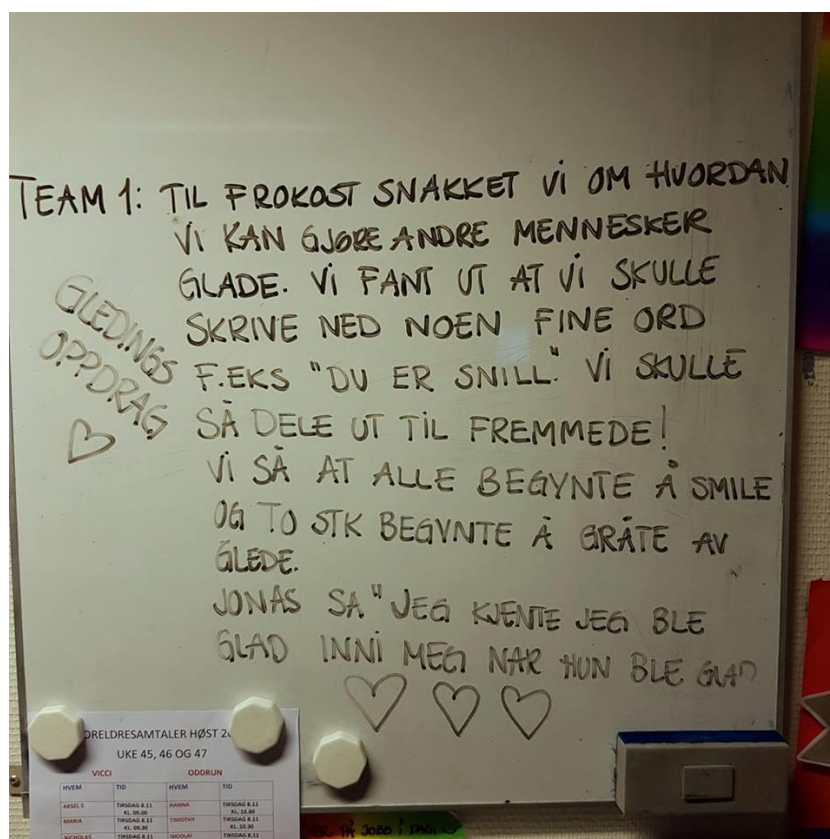 TEAM 1: TIL FROKOST SNAKKET VI OM HVORDAN
VI KAN GJØRE ANDRE MENNESKER
GLADE. VI FANT UT AT VI SKULLE
SKRIVE NED NOEN FINE ORD
F.EKS "DU ER SNILL." VI SKULLE
SÅ DELE UT TIL FREMMEDE!
VI SÅ AT ALLE BEGYNTE Å SMILE
OG TO STK BEGYNTE Å GRÅTE AV
GLEDE.
JONAS SA "JEG KJENTE JEG BLE
GLAD INNI MEG NÅR HUN BLE GLAD
GLEDINGS
OPPDRAG
ORELDRESAMTALER HØST
UKE 45, 46 OG 47
VICCI ODDRUN
HVEM TID HVEM TID
AKSEL S TIRSDAG 8.11 KL. 09.00 HANNA TIRSDAG 8.11 KL. 10.00
MARIA TIRSDAG 8.11 KL. 09.30 TIMOTHY TIRSDAG 8.11 KL. 10.30
NICHOLAS TIRSDAG 8.11 NICOLAI TIRSDAG 8.11
PÅ JOBB I DAG